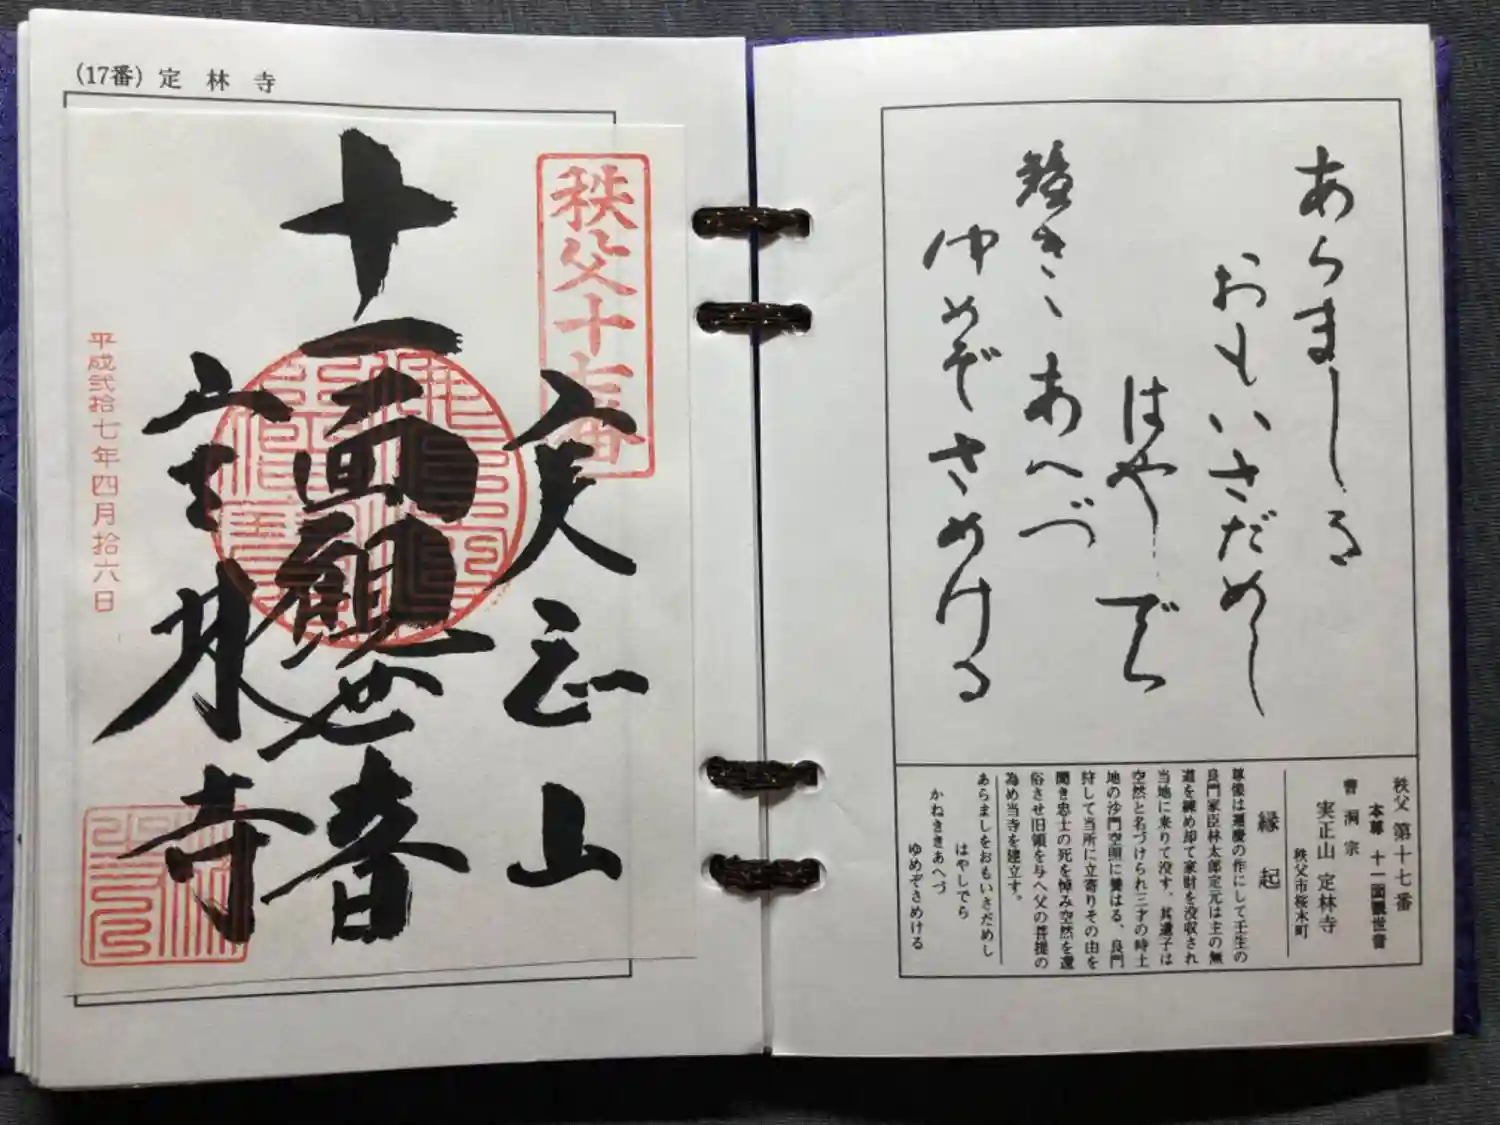 (17番) 定林寺
秩父十七番
実正山
十一面観世音
定林寺
平成弐拾七年四月拾六日
あらましを
おもいさだめし
はやしでら
鐘きゝあへづ
ゆめぞさめける
秩父 第十七番
本尊 十一面観世音
曹洞宗
実正山 定林寺
秩父市桜木町
縁起
尊像は運慶の作にして壬生の
良門家臣林太郎定元は主の無
道を練め却て家財を没収され
当地に来りて没す。其遺子は
空然と名づけられ三才の時土
地の沙門空照に養はる、良門
狩して当所に立寄りその由を
聞き忠士の死を悼み空然を還
俗させ旧領を与へ父の菩提の
為め当寺を建立す。
あらましをおもいさだめし
はやしでら
かねききあへづ
ゆめぞさめける